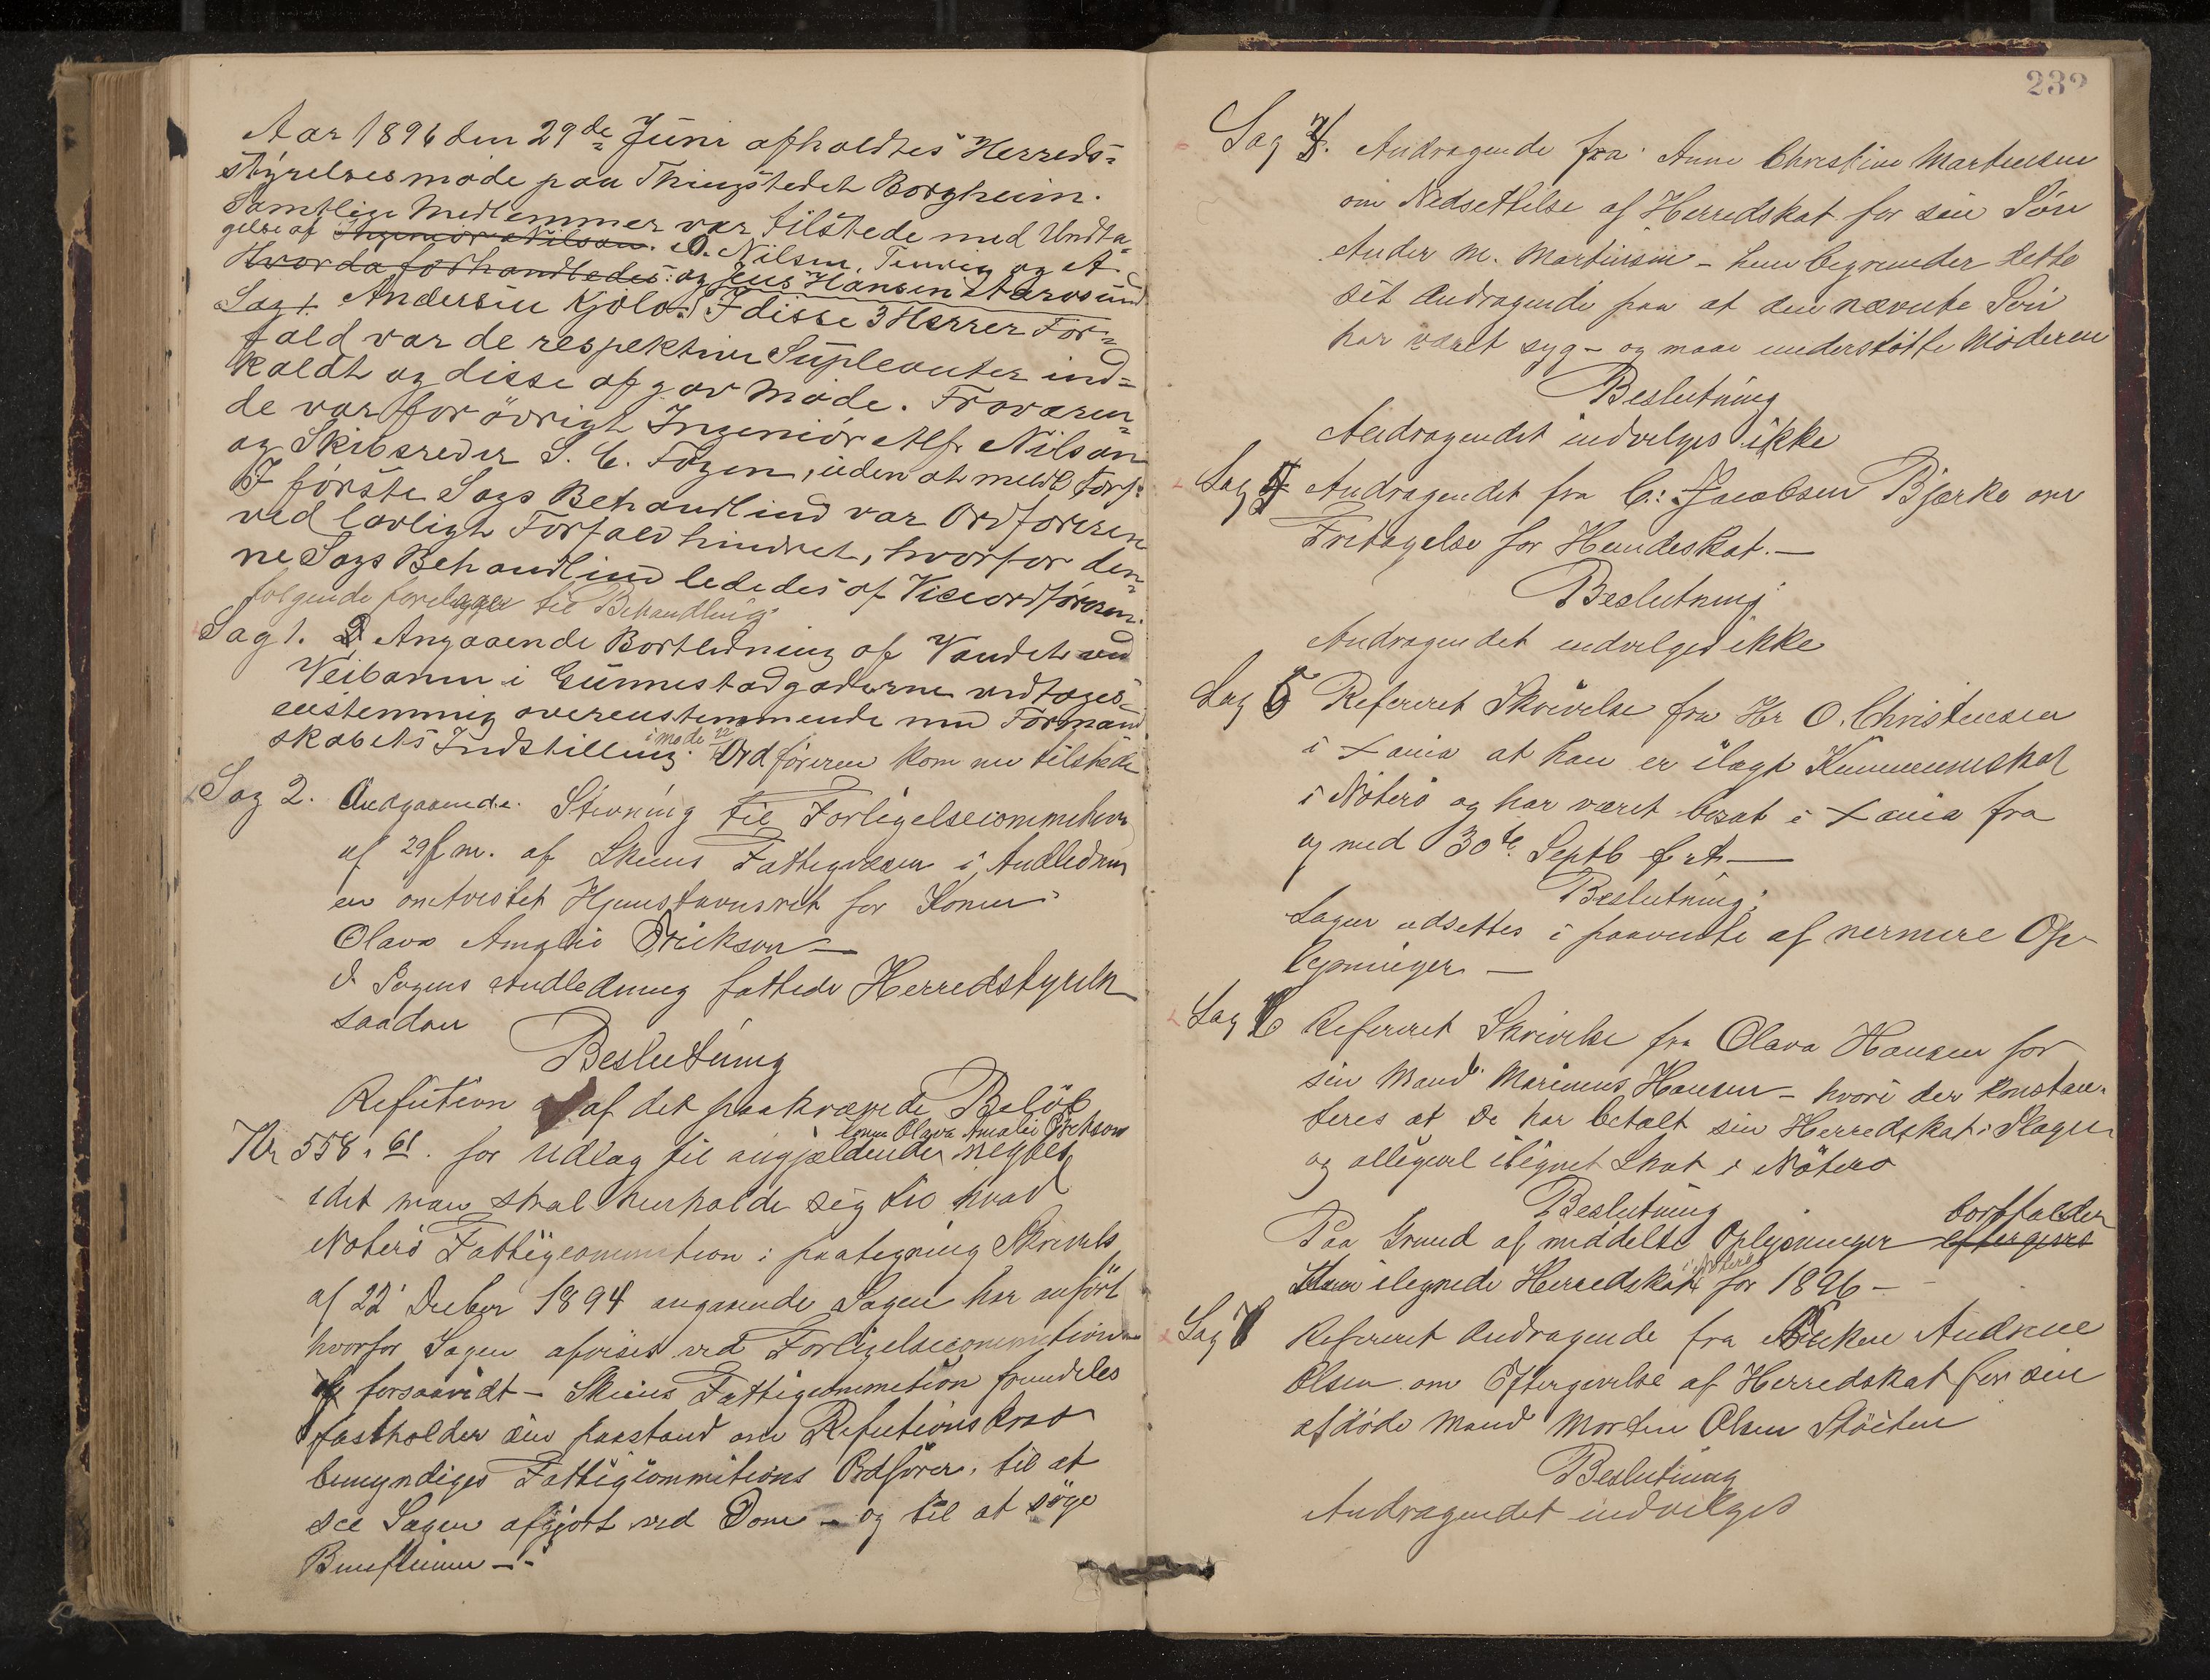 Aar 1896 den 29de Juni afholdtes Herreds=
styrelsesmøde paa Thingstedet Borgheim.
Samtlige Medlemmer var tilstede med Undta=
gelse af Ingeniør Nilson. O. Nilsen, Tenvig og A.
Hvorda forhandledes: og Jens Hansen Aarosund
Sag 1. Andersen Kjølo. I disse 3 Herrer For=
fald var de respektive Supleanter ind=
kaldt og disse afgav Møde. Fraværen=
de var for øvrigt Ingeniør Alf. Nilson
og Skibsreder S. C. Føyen, uden at meldt Forf.
I første Sags Behandlind var Ordføreren
ved lovligt Forfald hindret, hvorfor den=
ne Sags Behandlind lededes af Viceordføreren.
følgende forelagger til Behandling
Sag 1. Angaaende Bortledning af Vandet ved
Veibanen i Gunnestadgaderne vedtoges
enstemmig overenstemmende med Formand
skabets Indstilling i møde 22 Ordføreren kom nu tilstede
Sag 2. Andgaaende Stevning til Forligelsecommetion
af 29 f.m. af Skiens Fattigvæsen i Andledning
en omtvistet Hjemstavnsret for Konen
Olava Amalie Erikson —
I Sagens Andledning fattede Herredstyrelsen
saadan
Beslutning
Refution af det paakrævede Beløb
Konen Olava Amalie Erikson
Kr 558.61. for Udlag til angjældende negtes
idet man skal henholde sig til hvad
Nøterø Fattigcommetion i paategning Skrivels
af 22 Decbr 1894 angaaende Sagen har anført
hvorfor Sagen afvises ved Forligelsecommetionen
og forsaavidt — Skiens Fattigcommetion fremdeles
fastholder sin paastand om Refutionskrav
bemyndiges Fattigcommetions Ordfører, til at
see Sagen afgjort ved Dom — og til at søge
Beneficium —
232
Sag 3. Andragende fra Anne Christine Martinsen
om Nedsettelse af Herredskat for sin Søn
Ander M. Martinsen — hun begrunder dette
sit Andragende paa at den nævnte Søn
har været syg — og maae understøtte Moderen
Beslutning
Andragendet indvelges ikke
Sag 4 Andragendet fra C. Jacobsen Bjærke om
Fritagelse for Hundeskat. —
Beslutning
Andragendet indvelges ikke
Sag 5 Refereret Skrivelse fra Hr O. Christensen
i Xania at han er ilagt Kummuneskat
i Nøterø og har været bosat i Xania fra
og med 30te Septb f. A. —
Beslutning
Sagen udsettes i paavente af nermere Op-
lysninger —
Sag 6 Refereret Skrivelse fra Olava Hansen for
sin Mand Marinus Hansen — hvori der konstan-
teres at De har betalt sin Herredskat i Slagen
og alligevel ilignet Skat i Nøterø
Beslutning
bortfalder
Paa Grund af meddelte Oplysninger eftergives
i Nøterø
ilegnede Herredskat for 1896 —
Sag 7 Refereret Andragende fra Enken Andrine
Olsen om Eftergivelse af Herredskat for sin
afdøde Mand Morten Olsen Støiten
Beslutning
Andragendet indvelges